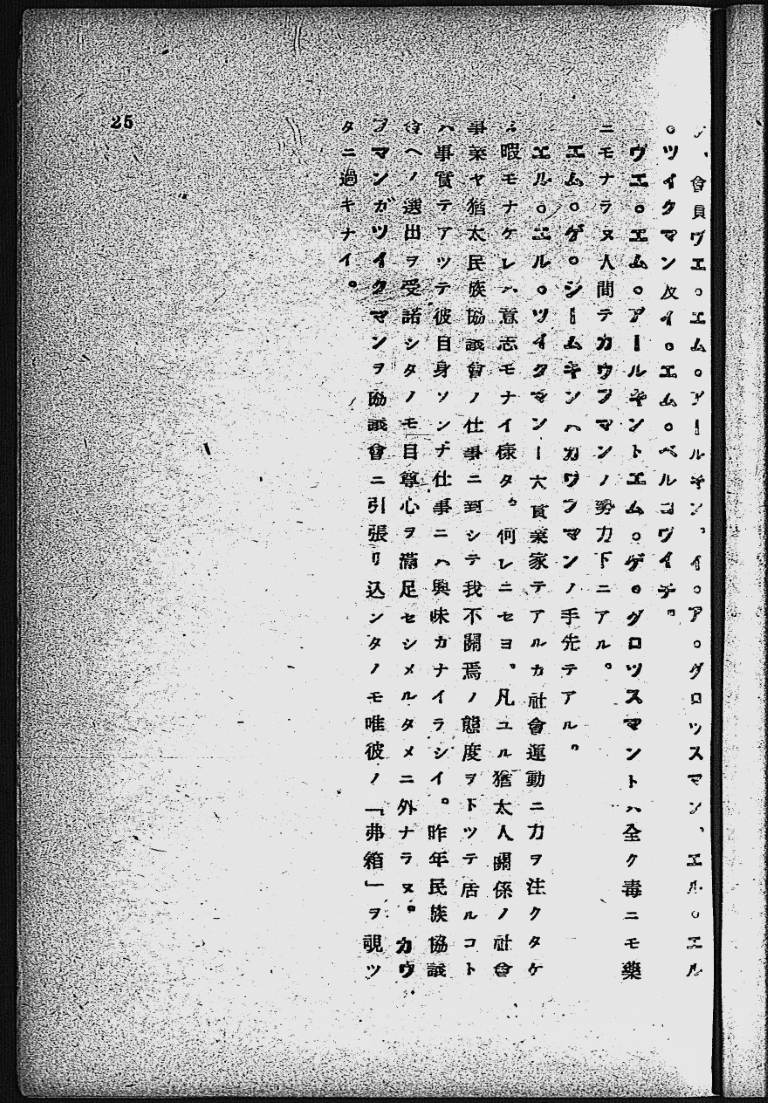 、會員ヴエ。エム。アールキン、イ。ア。グロツスマン、エル。エル
。ツイクマン及イ。エム。ベルコヴイチ。
ヴエ。エム。アールキントエム。ゲ。グロツスマントハ全ク毒ニモ藥
ニモナラヌ人間テカウフマンノ勢力下ニアル。
エム。ゲ。シームキンハカウフマンノ手先テアル。
エル。エル。ツイクマン一大實業家テアルカ社會運動ニ力ヲ注クタケ
ノ暇モナケレハ意志モナイ樣タ。何レニセヨ、凡ユル猶太人關係ノ社會
事業ヤ猶太民族協議會ノ仕事ニ到シテ我不關焉ノ態度ヲトツテ居ルコト
ハ事實テアツテ彼自身ソンナ仕事ニハ興味カナイラシイ。昨年民族協議
會ヘノ選出ヲ受諾シタノモ自尊心ヲ滿足セシメルタメニ外ナラヌ。カウ
フマンガツイクマンヲ協議會ニ引張リ込ンタノモ唯彼ノ「弗箱」ヲ覗ツ
タニ過キナイ。
25